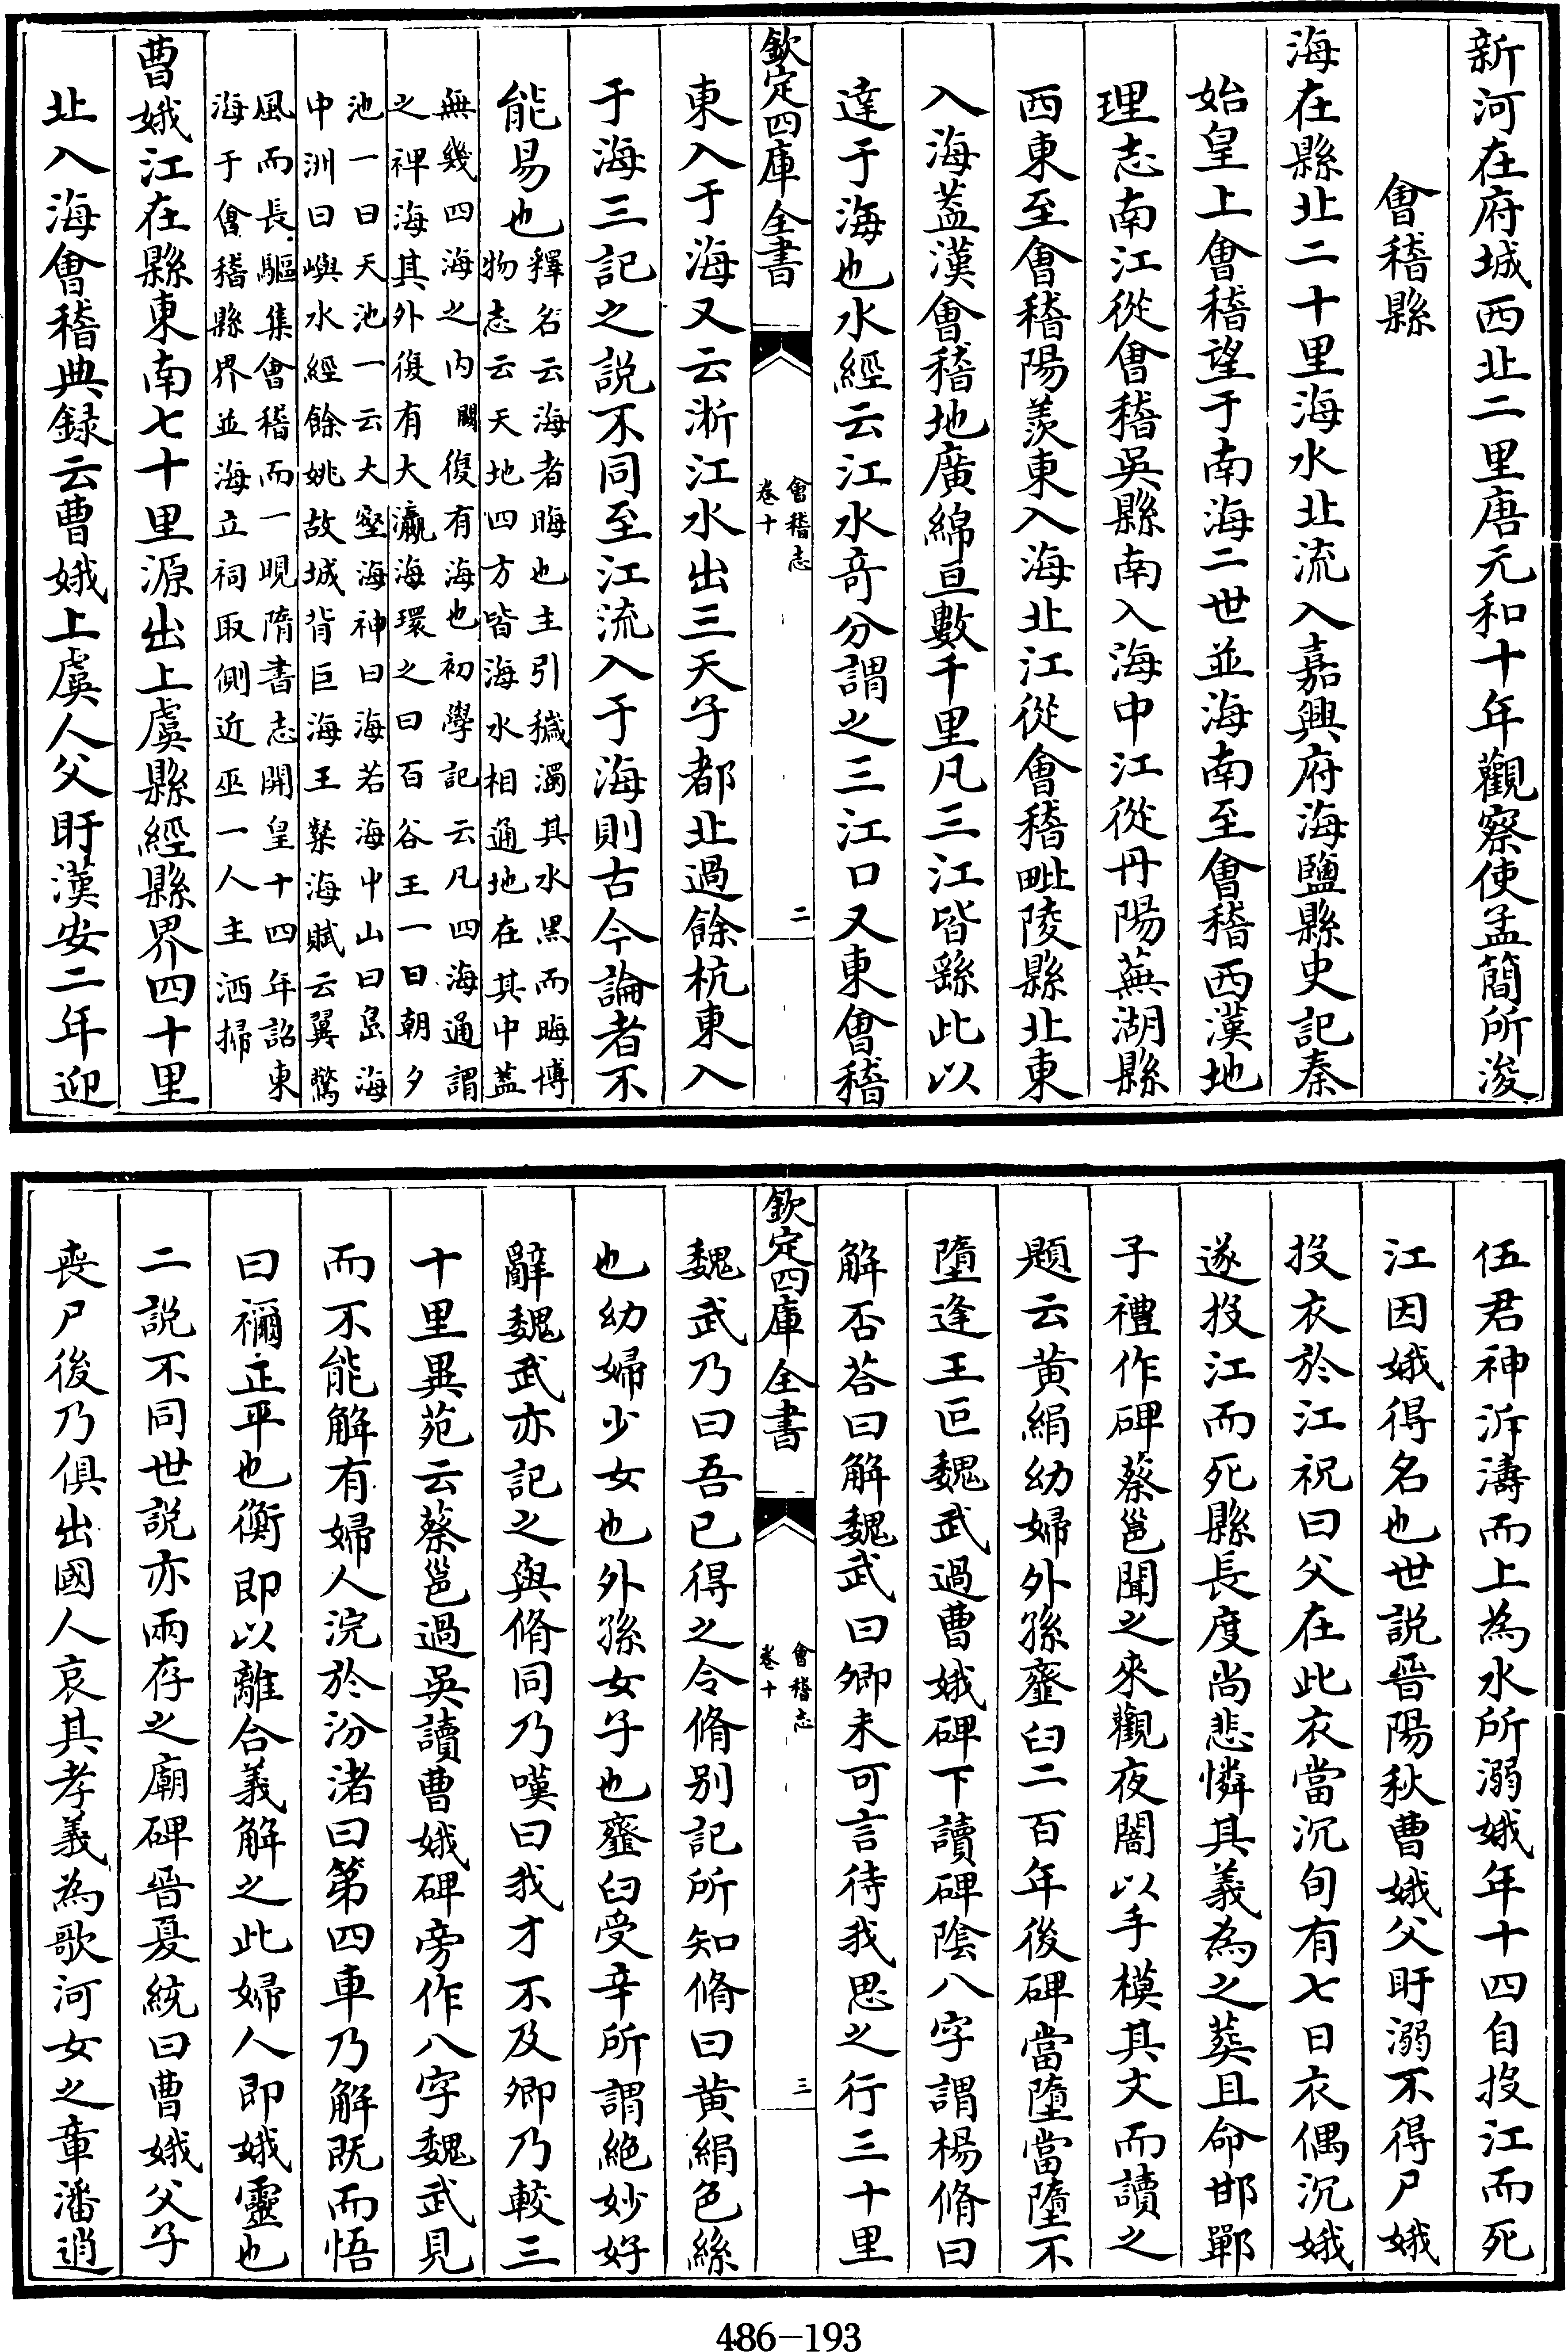 新河在府城西北二里唐元和十年觀察使孟簡所浚
會稽縣
海在縣北二十里海水北流入嘉興府海鹽縣史記秦
始皇上會稽望于南海二世並海南至會稽西漢地
理志南江從會稽吳縣南入海中江從丹陽蕪湖縣
西東至會稽陽羨東入海北江從會稽毗陵縣北東
入海蓋漢會稽地廣綿亘數千里凡三江皆繇此以
達于海也水經云江水奇分謂之三江口又東會稽
欽定四庫全書
會稽志
卷十
二
東入于海又云浙江水出三天子都北過餘杭東入
于海三記之説不同至江流入于海則古今論者不
能易也
釋名云海者晦也主引穢濁其水黑而晦博
物志云天地四方皆海水相通地在其中蓋
無幾四海之内闕復有海也初學記云凡四海通謂
之裨海其外復有大瀛海環之曰百谷王一曰朝夕
池一曰天池一云大壑海神曰海若海中山曰島海
中洲曰嶼水經餘姚故城背巨海王粲海賦云翼驚
風而長驅集會稽而一睨隋書志開皇十四年詔東
海于會稽縣界並海立祠取側近巫一人主洒掃
曹娥江在縣東南七十里源出上虞縣經縣界四十里
北入海會稽典録云曹娥上虞人父盱漢安二年迎
伍君神泝濤而上為水所溺娥年十四自投江而死
江因娥得名也世説晉陽秋曹娥父盱溺不得尸娥
投衣於江祝曰父在此衣當沉旬有七日衣偶沉娥
遂投江而死縣長度尚悲憐其義為之葬且命邯鄲
子禮作碑蔡邕聞之來觀夜闇以手模其文而讀之
題云黄絹幼婦外孫齏臼二百年後碑當墮當墮不
墮逢王叵魏武過曹娥碑下讀碑陰八字謂楊脩曰
解否荅曰解魏武曰卿未可言待我思之行三十里
欽定四庫全書
會稽志
卷十
三
魏武乃曰吾已得之令脩别記所知脩曰黄絹色絲
也幼婦少女也外孫女子也齏臼受辛所謂絶妙好
辭魏武亦記之與脩同乃嘆曰我才不及卿乃較三
十里異苑云蔡邕過吳讀曹娥碑旁作八字魏武見
而不能解有婦人浣於汾渚曰第四車乃解既而悟
曰禰正平也衡即以離合義解之此婦人即娥靈也
二説不同世説亦兩存之廟碑晉夏統曰曹娥父子
喪尸後乃俱出國人哀其孝義為歌河女之章潘逍
486-193